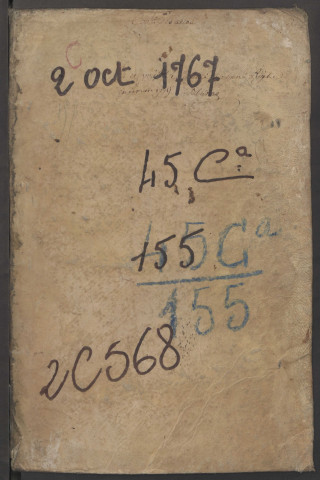 C
2 oct 1767
45 Cª
155
45 Cª
155
2C568